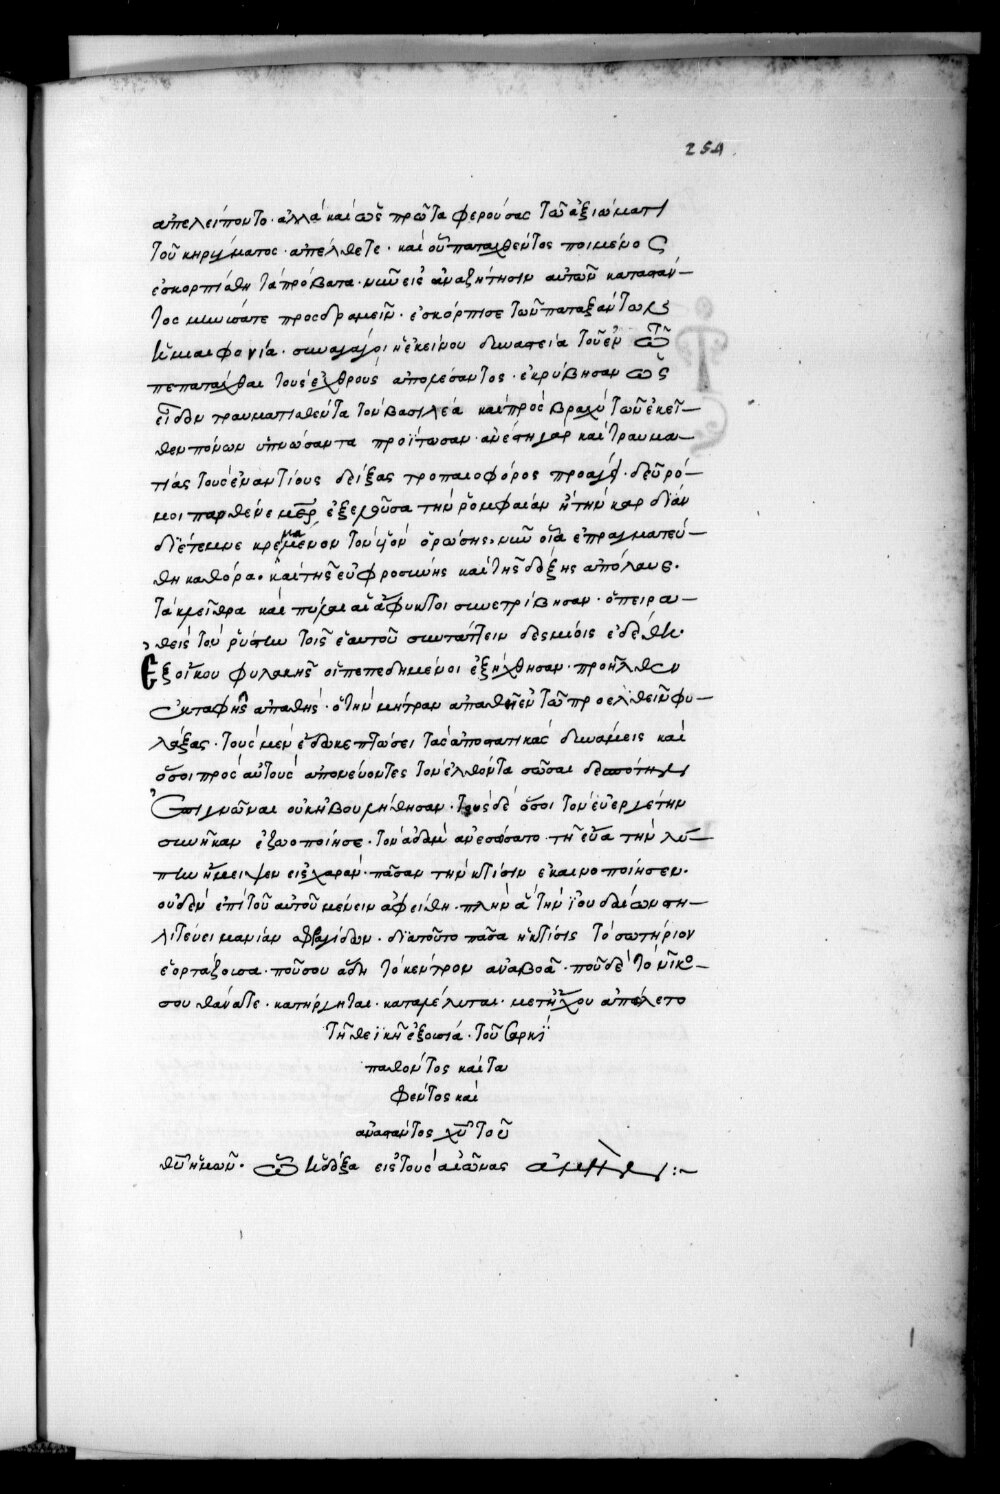 254
ἀπελείποντο· ἀλλὰ καὶ ὡς πρῶτα φερούσας τῶ ἀξιώματι
τοῦ κηρύγματος· ἀπέλθετε· καὶ οὗ παταχθέντος ποιμένος
ἐσκορπίσθη τὰ πρόβατα· νῦν εἰς ἀναζήτησιν αὐτῶν καταστάν-
τος προσδραμεῖν· ἐσκόρπισε τῶν παταξάντων
ἡ μιαιφονία· συναγάγοι ἡ ἐκείνου δυναστεία τοῦ ἐν ὧ
πεπατάχθαι τοὺς ἐχθροὺς ἀπολέσαντος· ἐκρύβησαν ὡς
εἶδον τραυματισθέντα τὸν βασιλέα καὶ πρὸς βραχὺ τῶν ἐκεῖ-
θεν πόνων ὑπνώσαντα προϊτωσαν· ἀνέστη γὰρ καὶ τραυμα-
τίας τοὺς ἐναντίους δείξας τροπαιοφόρος προάγει· δεῦρό-
μοι παρθένε μῆρ ἐξελοῦσα τὴν ῥομφαίαν ἣ τὴν καρδίαν
διέτεμνε κρεμάμενον τὸν υἱὸν ὁρώσης· νῦν οἷα ἐπραγματεύ-
θη καθόρα· καὶ τῆς εὐφροσύνης καὶ τῆς δόξης ἀπόλαυε·
τὰ κλεῖθρα καὶ πύλαι αἱ ἄφυκτοι συνετρίβησαν· ὁ πειρα-
θεὶς τὸν ῥύστην τοῖς ἑαυτοῦ συντάττειν δεσμίοις ἐδέθη·
Ἐξ οἴκου φυλακῆς οἱ πεπεδημένοι ἐξήχθησαν· προῆλθεν
ἐκ ταφῆς ἀπαθὴς· ὁ τὴν μήτραν ἀπαθῆ ἐν τῶ προελθεῖν φυ-
λάξας· τοὺς μὲν ἔδωκε πτώσει τὰς ἀποστατικὰς δυνάμεις καὶ
ὅσοι πρὸς αὐτοὺς ἀπονεύοντες τὸν ἐλθόντα σῶσαι δεσπότην
ἐπιγνῶναι οὐκ ἠβουλήθησαν· τοὺς δὲ ὅσοι τὸν εὐεργέτην
συνῆκαν ἐζωοποίησε· τὸν ἀδὰμ ἀνεσώσατο· τῆ εὔα τὴν λύ-
πην ἤμειψεν εἰς χαρὰν· πᾶσαν τὴν κτίσιν ἐκαινοποίησεν·
οὐδὲν ἐπὶ τοῦ αὐτοῦ μένειν ἀφείθη· πλὴν ἃ τὴν ἰουδαίων στη-
λιτεύει μανίαν σφραγίδων· διατοῦτο πᾶσα ἡ κτίσις τὸ σωτήριον
ἑορτάζουσα· ποῦ σου ἅδη τὸ κέντρον ἀναβοᾶ· ποῦ δὲ τὸ νῖκο-
σου θάνατε· κατήργηται· καταλέλυται· μετ' ἤχου ἀπώλετο
τῆ θεϊκῆ ἐξουσία· τοῦ σαρκὶ
παθόντος καὶ τα
φέντος καὶ
ἀναστάντος χῦ τοῦ
θῦ ἡμῶν· ὧ ἡ δόξα εἰς τοὺς αἰῶνας ἀμήν:~